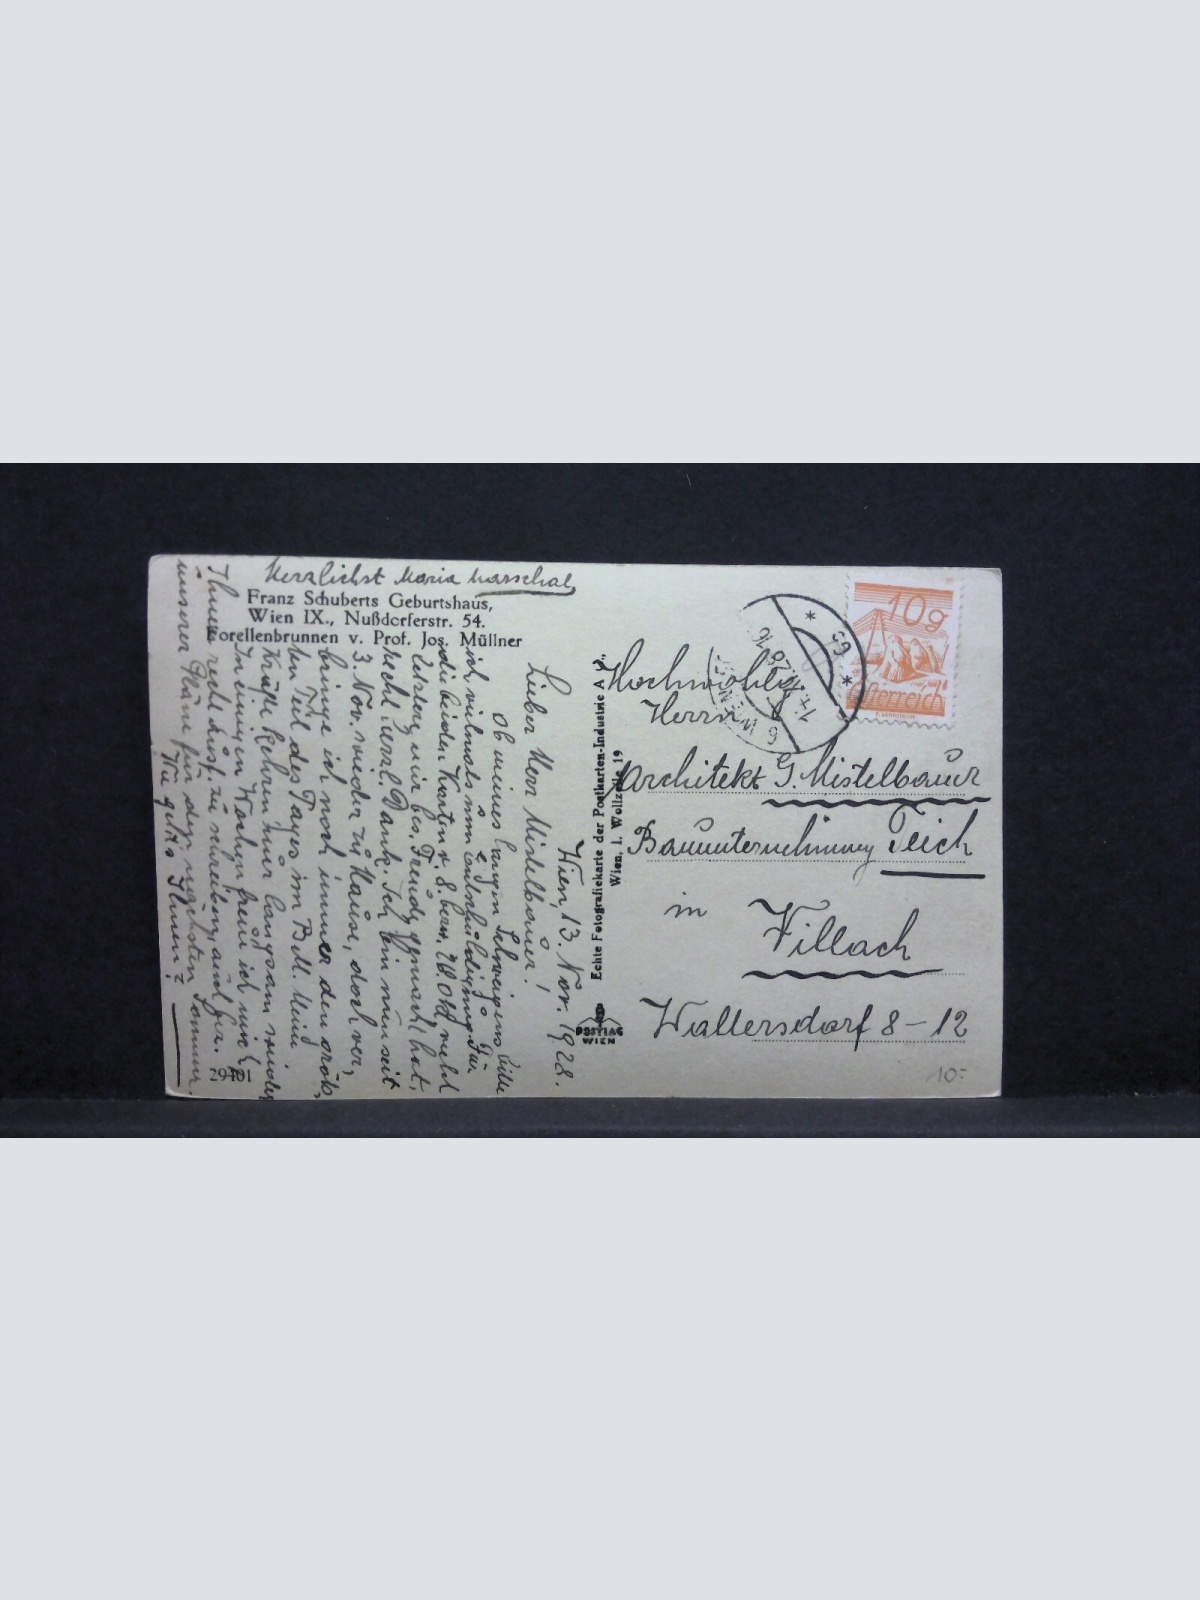 Herzlichst Maria Marschal
Franz Schuberts Geburtshaus,
Wien IX., Nußdorferstr. 54.
Forellenbrunnen v. Prof. Jos. Müllner
Wien, 13. Nov. 1928.
Lieber Herr Mistelbauer!
Ob meines langen Schweigens bitte
ich vielmals um Entschuldigung. Für
die beiden Karten v. 8. bezw. 28. Okt.
letztere mir bes. Freude gemacht hat,
recht herzl. Dank. Ich bin nun seit
3. Nov. wieder zu Hause, doch ver,
bringe ich noch immer den größ,
ten Teil des Tages im Bett. Meine
Kräfte kehren nur langsam wieder
In einigen Wochen freu ich mich
Ihnen recht ausf. zu schreiben, auch
unserer Pläne für den nächsten Sommer.
Wie geht's Ihnen?
29401
Echte Fotografiekarte der Postkarten-Industrie A.G.,
Wien, I. Wollzeile 19
POSTIAG
WIEN
10g
Österreich
14.XI.28 16
6 WIEN
63
Hochwohlg.
Herrn
Architekt G. Mistelbauer
Bauunternehmung Teich
in Villach
Wallersdorf 8-12
10.-